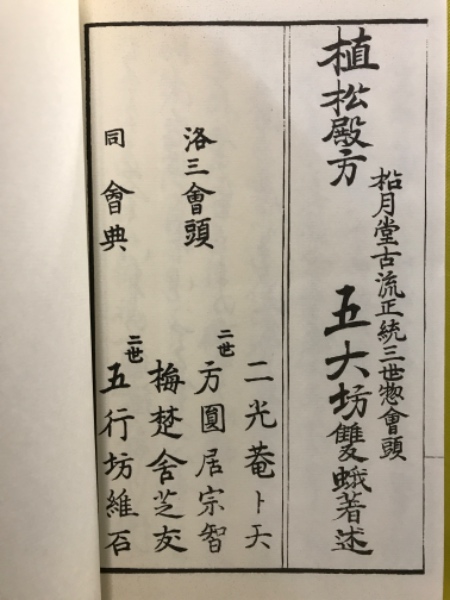 植松殿方
松月堂古流正統三世惣會頭
五大坊雙蛾著述
二光菴卜天
洛三會頭
二世
方圓居宗智
梅楚舍芝友
同會典
二世
五行坊維石